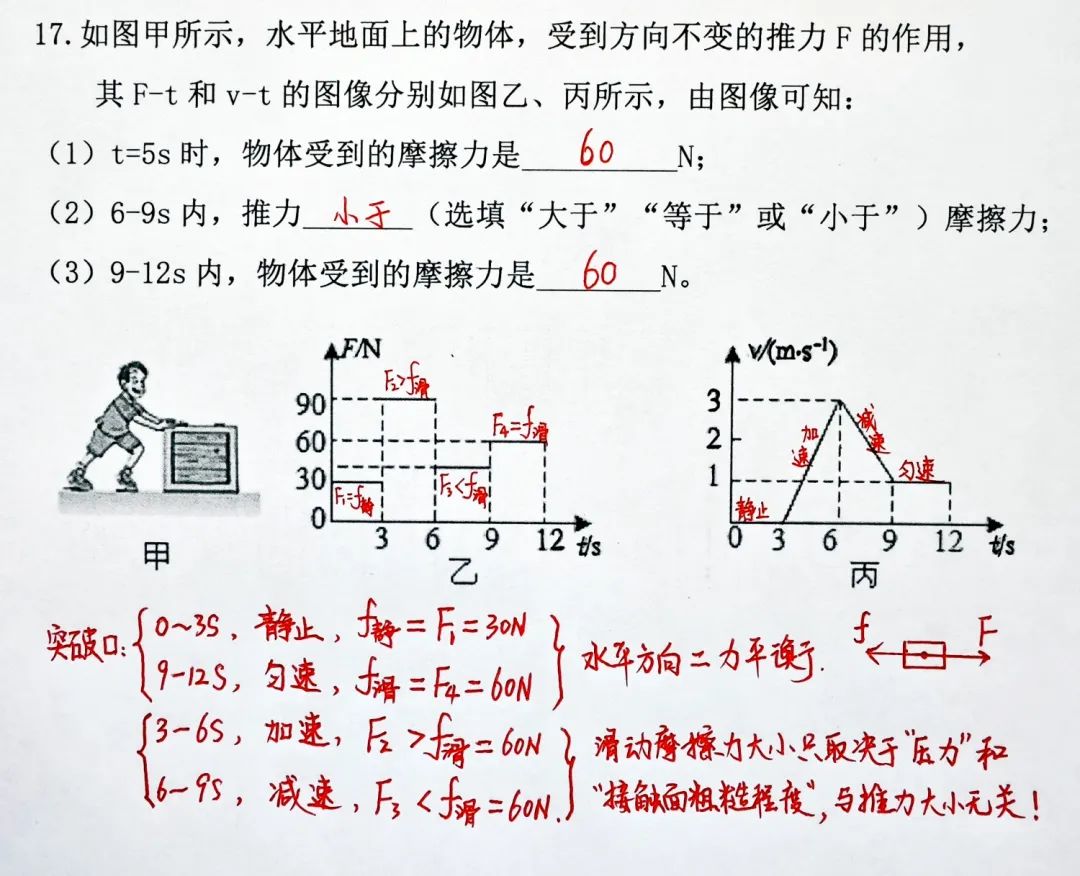 17. 如图甲所示，水平地面上的物体，受到方向不变的推力 F 的作用，
其 F-t 和 v-t 的图像分别如图乙、丙所示，由图像可知：
（1）t=5s 时，物体受到的摩擦力是 60 N；
（2）6-9s 内，推力 小于 （选填“大于”“等于”或“小于”）摩擦力；
（3）9-12s 内，物体受到的摩擦力是 60 N。
甲
F/N
90
60
30
0
3 6 9 12 t/s
F₁=f静
F₂>f滑
F₃<f滑
F₄=f滑
乙
v/(m·s⁻¹)
3
2
1
0 3 6 9 12 t/s
静止
加速
减速
匀速
丙
突破口：
0~3S，静止，f静=F₁=30N
9-12S，匀速，f滑=F₄=60N
水平方向二力平衡.
f F
3-6S，加速，F₂>f滑=60N
6~9S，减速，F₃<f滑=60N.
滑动摩擦力大小只取决于“压力”和
“接触面粗糙程度”，与推力大小无关！